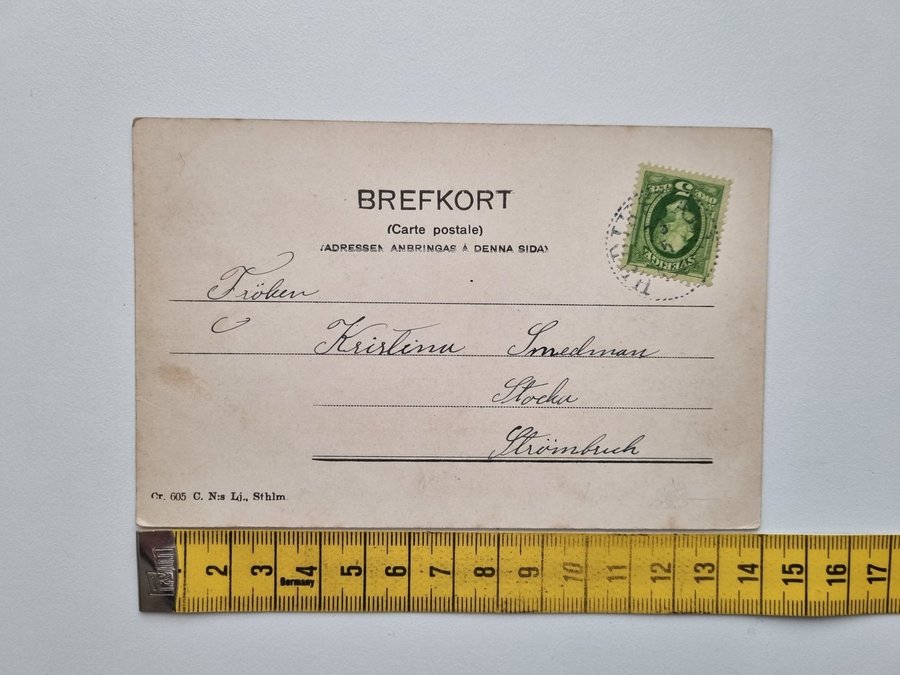 BREFKORT
(Carte postale)
(ADRESSEN ANBRINGAS Å DENNA SIDA)
5
SVERIGE
Fröken
Kristina Smedman
Stocka
Strömbruk
Cr. 605 C. N:s Lj., Sthlm
2 3 4 5 6 7 8 9 10 11 12 13 14 15 16 17
Germany